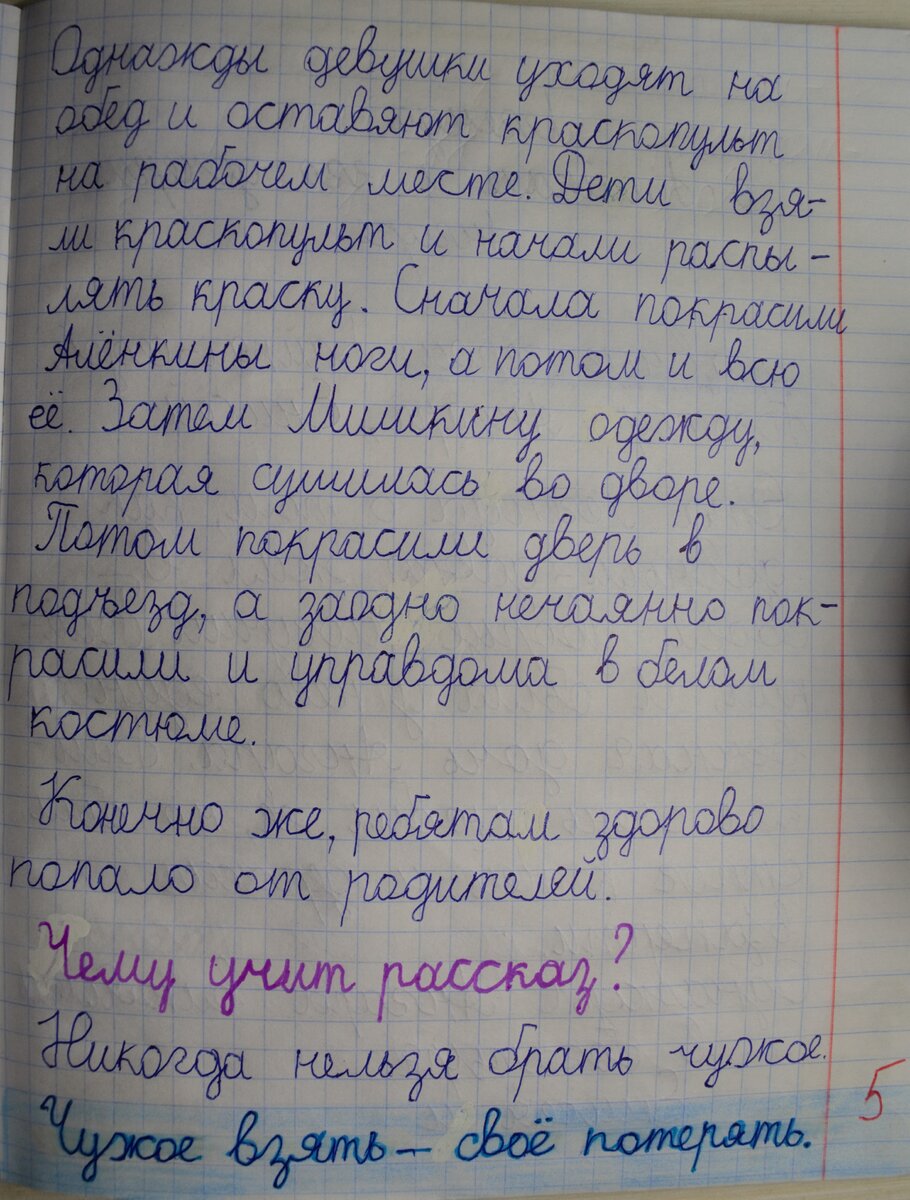 Однажды девушки уходят на
обед и оставяют краскопульт
на рабочем месте. Дети взя-
ли краскопульт и начали распы-
лять краску. Сначала покрасили
Алёнкины ноги, а потом и всю
её. Затем Мишкину одежду,
которая сушилась во дворе.
Потом покрасили дверь в
подъезд, а заодно нечаянно пок-
расили и управдома в белом
костюме.
Конечно же, ребятам здорово
попало от родителей.
Чему учит рассказ?
Никогда нельзя брать чужое.
Чужое взять – своё потерять.
5